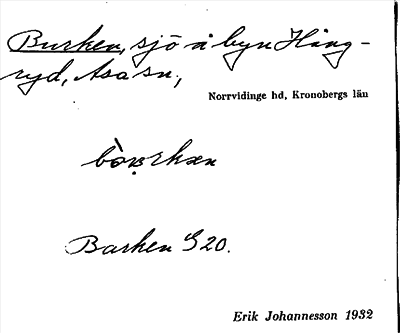 Burken, sjö å byn Häng-
ryd, Asa sn,
Norrvidinge hd, Kronobergs län
Barken S 20.
Erik Johannesson 1932